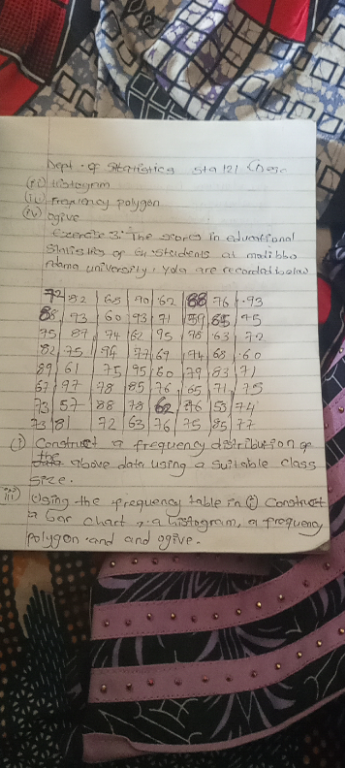 Dept. of Statistics Sta 121
(ii) Histogram
(iii) Frequency polygon
(iv) ogive
Exercise 3: The scores in educational
Statistics of 64 students at modibbo
Adama university, yola are recorded below
72 82 68 90 62 88 76 93
93 60 93 71 59 85 45
95 89 74 62 95 78 63 72
82 75 94 77 69 94 68 60
89 61 75 95 60 79 83 71
67 97 78 85 76 65 71 75
73 57 88 78 62 76 53 74
73 81 72 63 76 75 85 77
(i) Construct a frequency distribution of
the above data using a suitable class
size.
(ii) Using the frequency table in (i) Construct
a bar chart, a histogram, a frequency
polygon and and ogive.